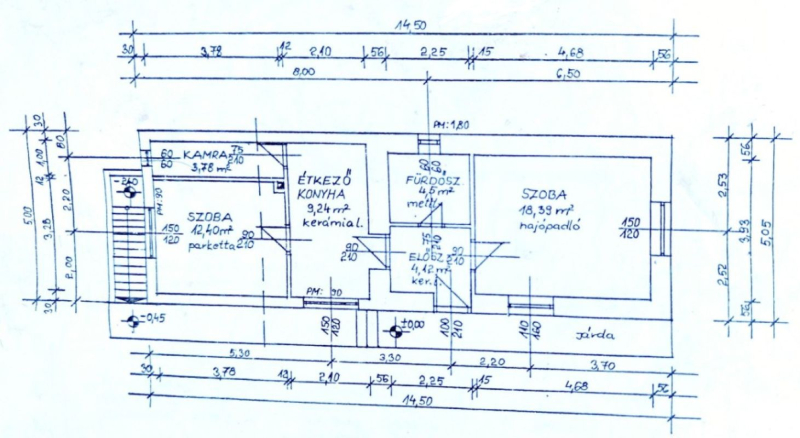 14,50
30 3,78 12 2,10 56 2,25 15 4,68 56
8,00 6,50
PM:1,80
30
1,00
12
3,28
30
5,00
80
2,20
2,00
60
60
KAMRA 75
210
3,78 m²
ÉTKEZŐ
KONYHA
9,24 m²
kerámial.
FÜRDŐSZ.
4,5 m²
60
60
SZOBA
18,39 m²
hajópadló
150
120
-2,40
PM:90
SZOBA
12,40 m²
parketta
150
120
90
210
90
210
75
210
ELŐSZ.
4,12 m²
ker.l.
90
210
PM: 90
-0,45
150
120
±0,00
100
210
110
140
járda
2,53
2,52
56
3,93
56
5,05
5,30 3,30 2,20 3,70
30 3,78 12 2,10 56 2,25 15 4,68 56
14,50